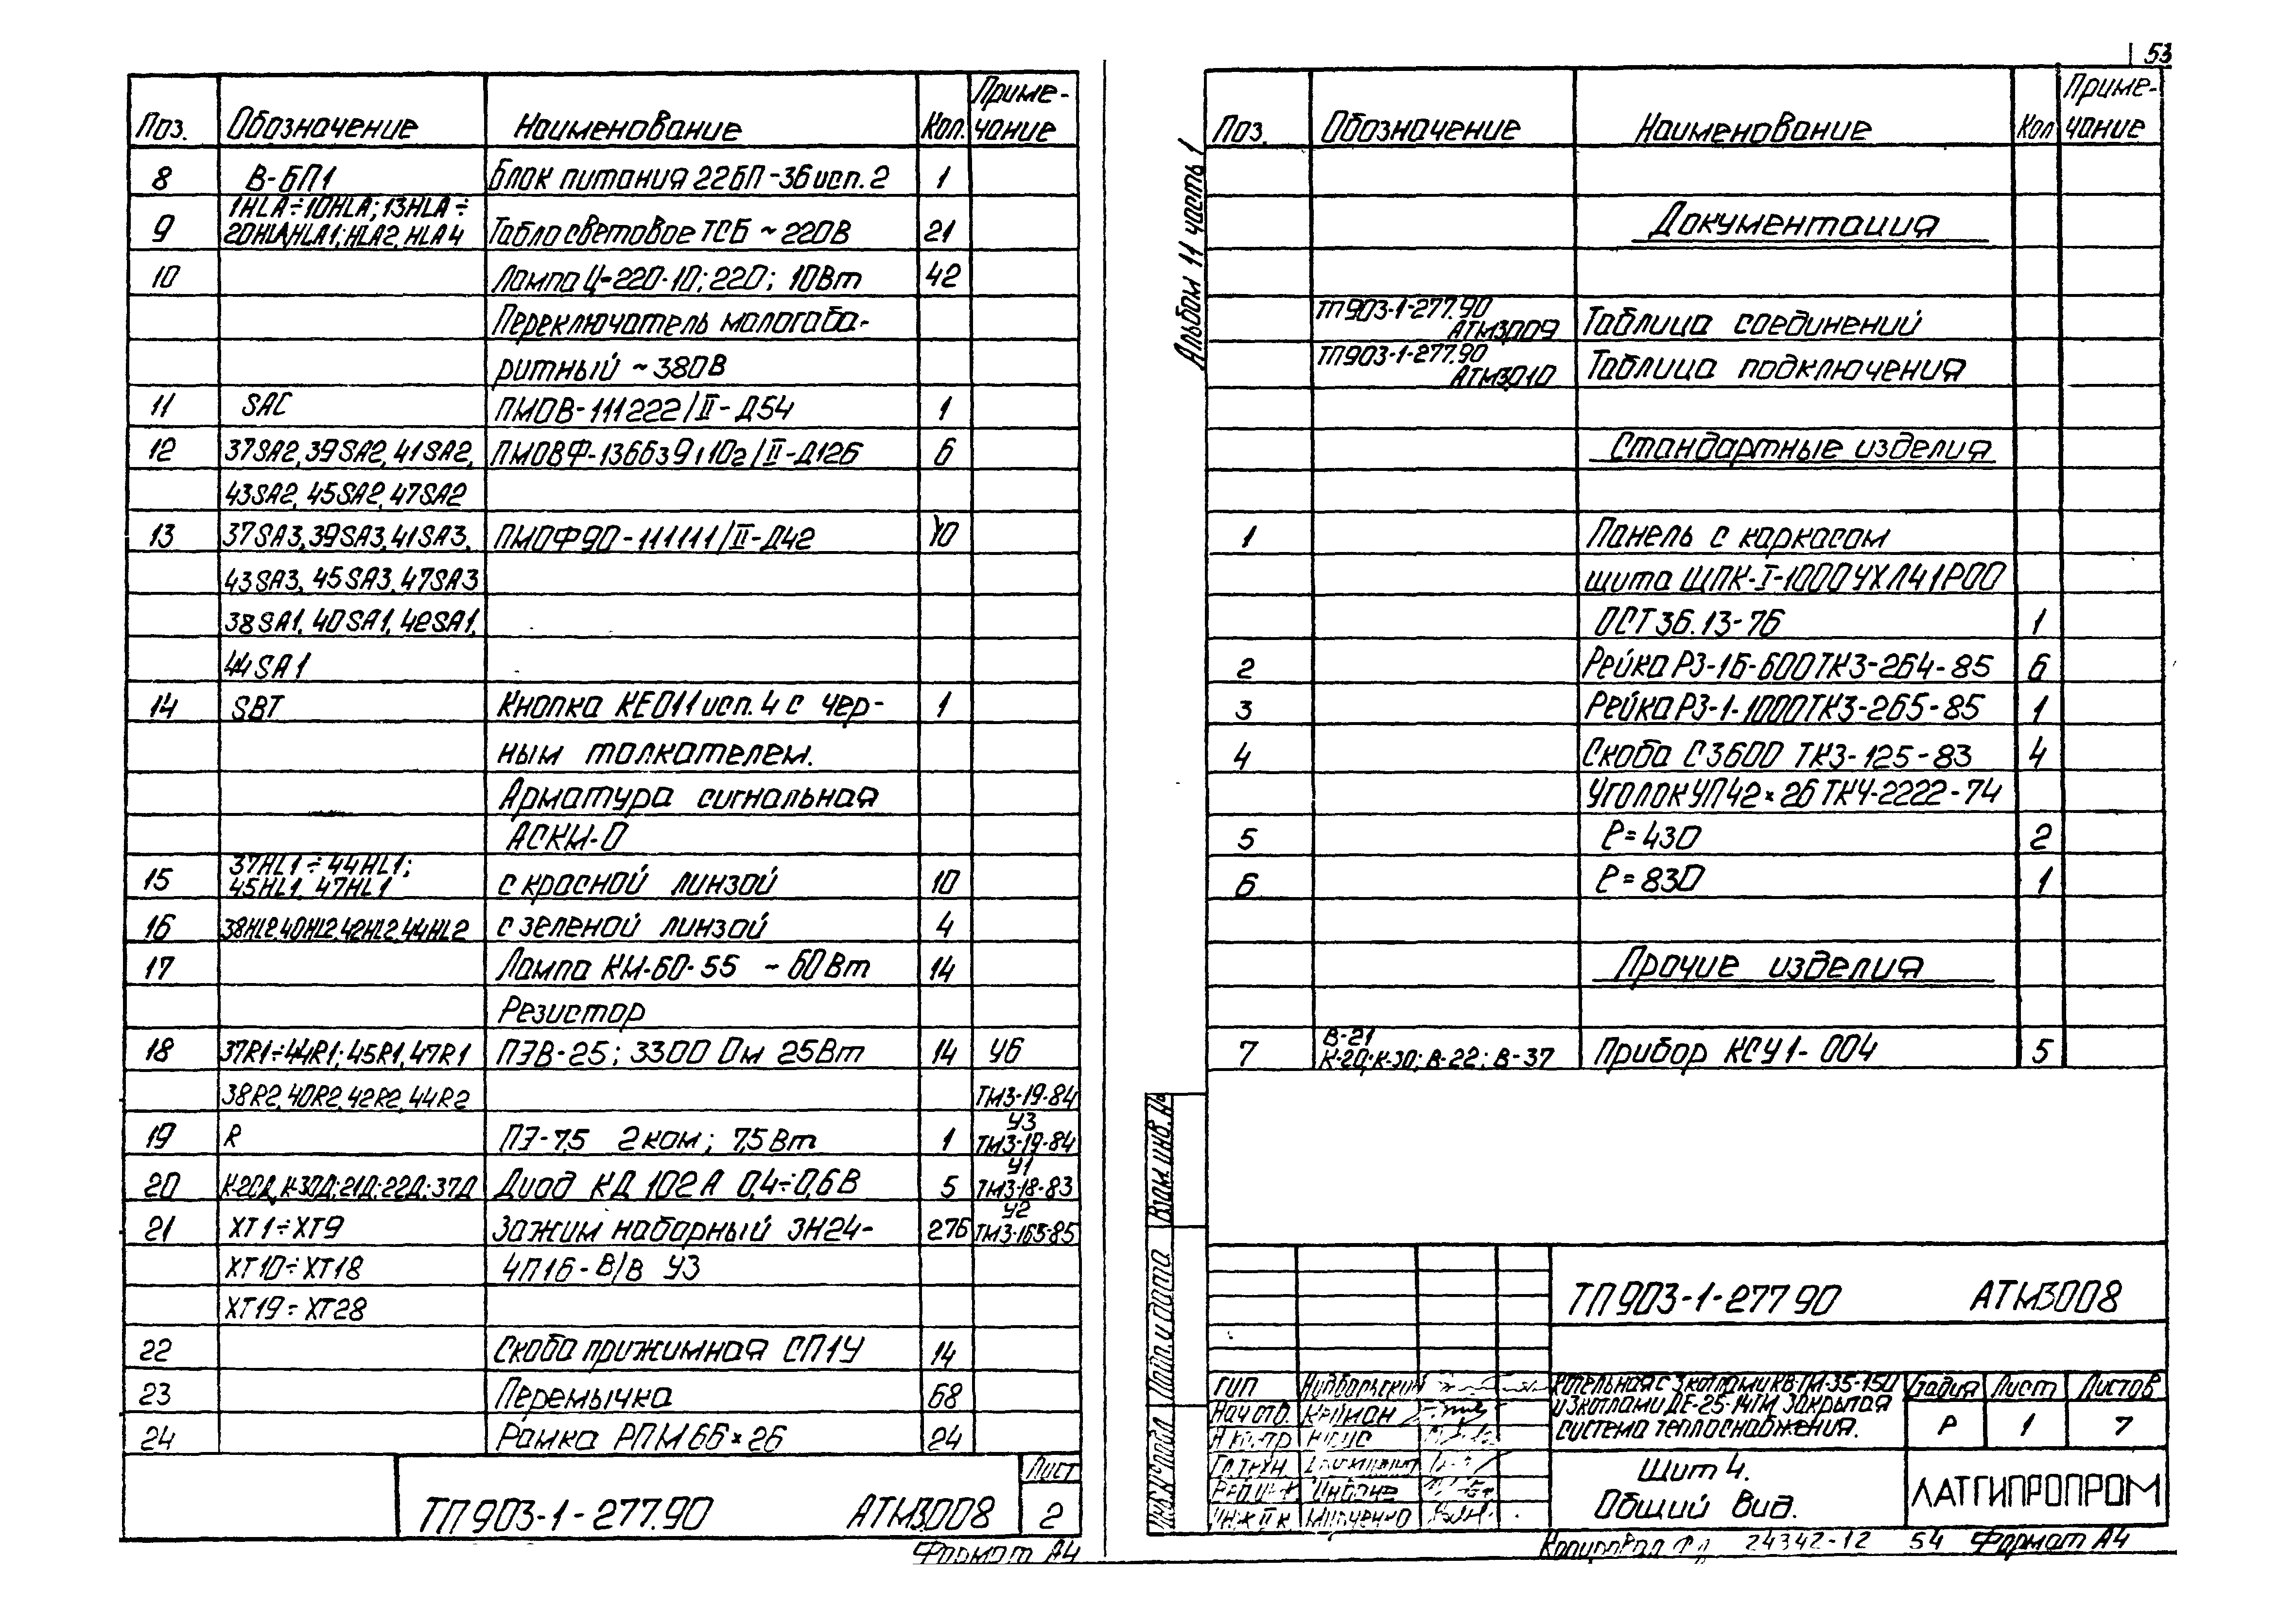 53
Поз. Обозначение Наименование Кол. Приме-
чание
8 В-БП1 Блок питания 22БП-36 исп. 2 1
1HLA÷10HLA; 13HLA÷
9 20HLA, HLA1; HLA2, HLA4 Табло световое ТСБ ~ 220В 21
10 Лампа Ц-220-10; 220; 10Вт 42
Переключатель малогаба-
ритный ~380В
11 SAC ПМОВ-111222/II-Д54 1
12 37SA2, 39SA2, 41SA2, 6
43SA2, 45SA2, 47SA2
13 37SA3, 39SA3, 41SA3, ПМОФ90-111111/II-Д42 10
43SA3, 45SA3, 47SA3
38SA1, 40SA1, 42SA1,
44SA1
14 SBT Кнопка КЕ011 исп. 4 с чер- 1
ным толкателем.
Арматура сигнальная
АСКМ-О
37HL1÷44HL1;
15 45HL1, 47HL1 с красной линзой 10
16 38HL2, 40HL2, 42HL2, 44HL2 с зеленой линзой 4
17 Лампа КМ-60-55 ~ 60Вт 14
Резистор
18 37R1÷44R1; 45R1, 47R1 ПЭВ-25; 3300 Ом 25Вт 14 У6
38R2, 40R2, 42R2, 44R2 ТМ3-19-84
У3
19 R ПЭ-7,5 2ком; 7,5Вт 1 ТМ3-19-84
У1
20 К-20Д, К-30Д; 21Д; 22Д; 37Д Диод КД 102А 0,4÷0,6В 5 ТМ3-18-83
У2
21 ХТ1÷ХТ9 Зажим наборный ЗН24- 276 ТМ3-165-85
ХТ10÷ХТ18 4П16-В/В У3
ХТ19÷ХТ28
22 Скоба прижимная СП1У 14
23 Перемычка 68
24 Рамка РПМ 66×26 24
ТП903-1-277.90 АТМ3008 Лист
2
Формат А4
Альбом 11 часть 1
Поз. Обозначение Наименование Кол Приме-
чание
Документация
ТП903-1-277.90
АТМ3009 Таблица соединений
ТП903-1-277.90
АТМ3010 Таблица подключения
Стандартные изделия
1 Панель с каркасом
щита ЩПК-I-1000УХЛ41Р00
ОСТ36.13-76 1
2 Рейка Р3-16-600ТК3-264-85 6
3 Рейка Р3-1-1000ТК3-265-85 1
4 Скоба С3600 ТК3-125-83 4
Уголок УП42×26 ТК4-2222-74
5 ℓ=430 2
6 ℓ=830 1
Прочие изделия
В-21
7 К-20; К-30; В-22; В-37 Прибор КСУ1-004 5
Взам. инв. №
Подп. и дата
Инв. № подл
ТП903-1-277.90 АТМ3008
Котельная с 3 котлами КВ-ТМ-35-150
и 3 котлами ДЕ-25-14ГМ Закрытая
система теплоснабжения.
Стадия Лист Листов
Р 1 7
ГИП
Нач отд. Крейман
Н контр
Гл.техн.
Инж II к Марченко
Щит 4.
Общий вид.
ЛАТГИПРОПРОМ
Копировал 24342-12 54 Формат А4